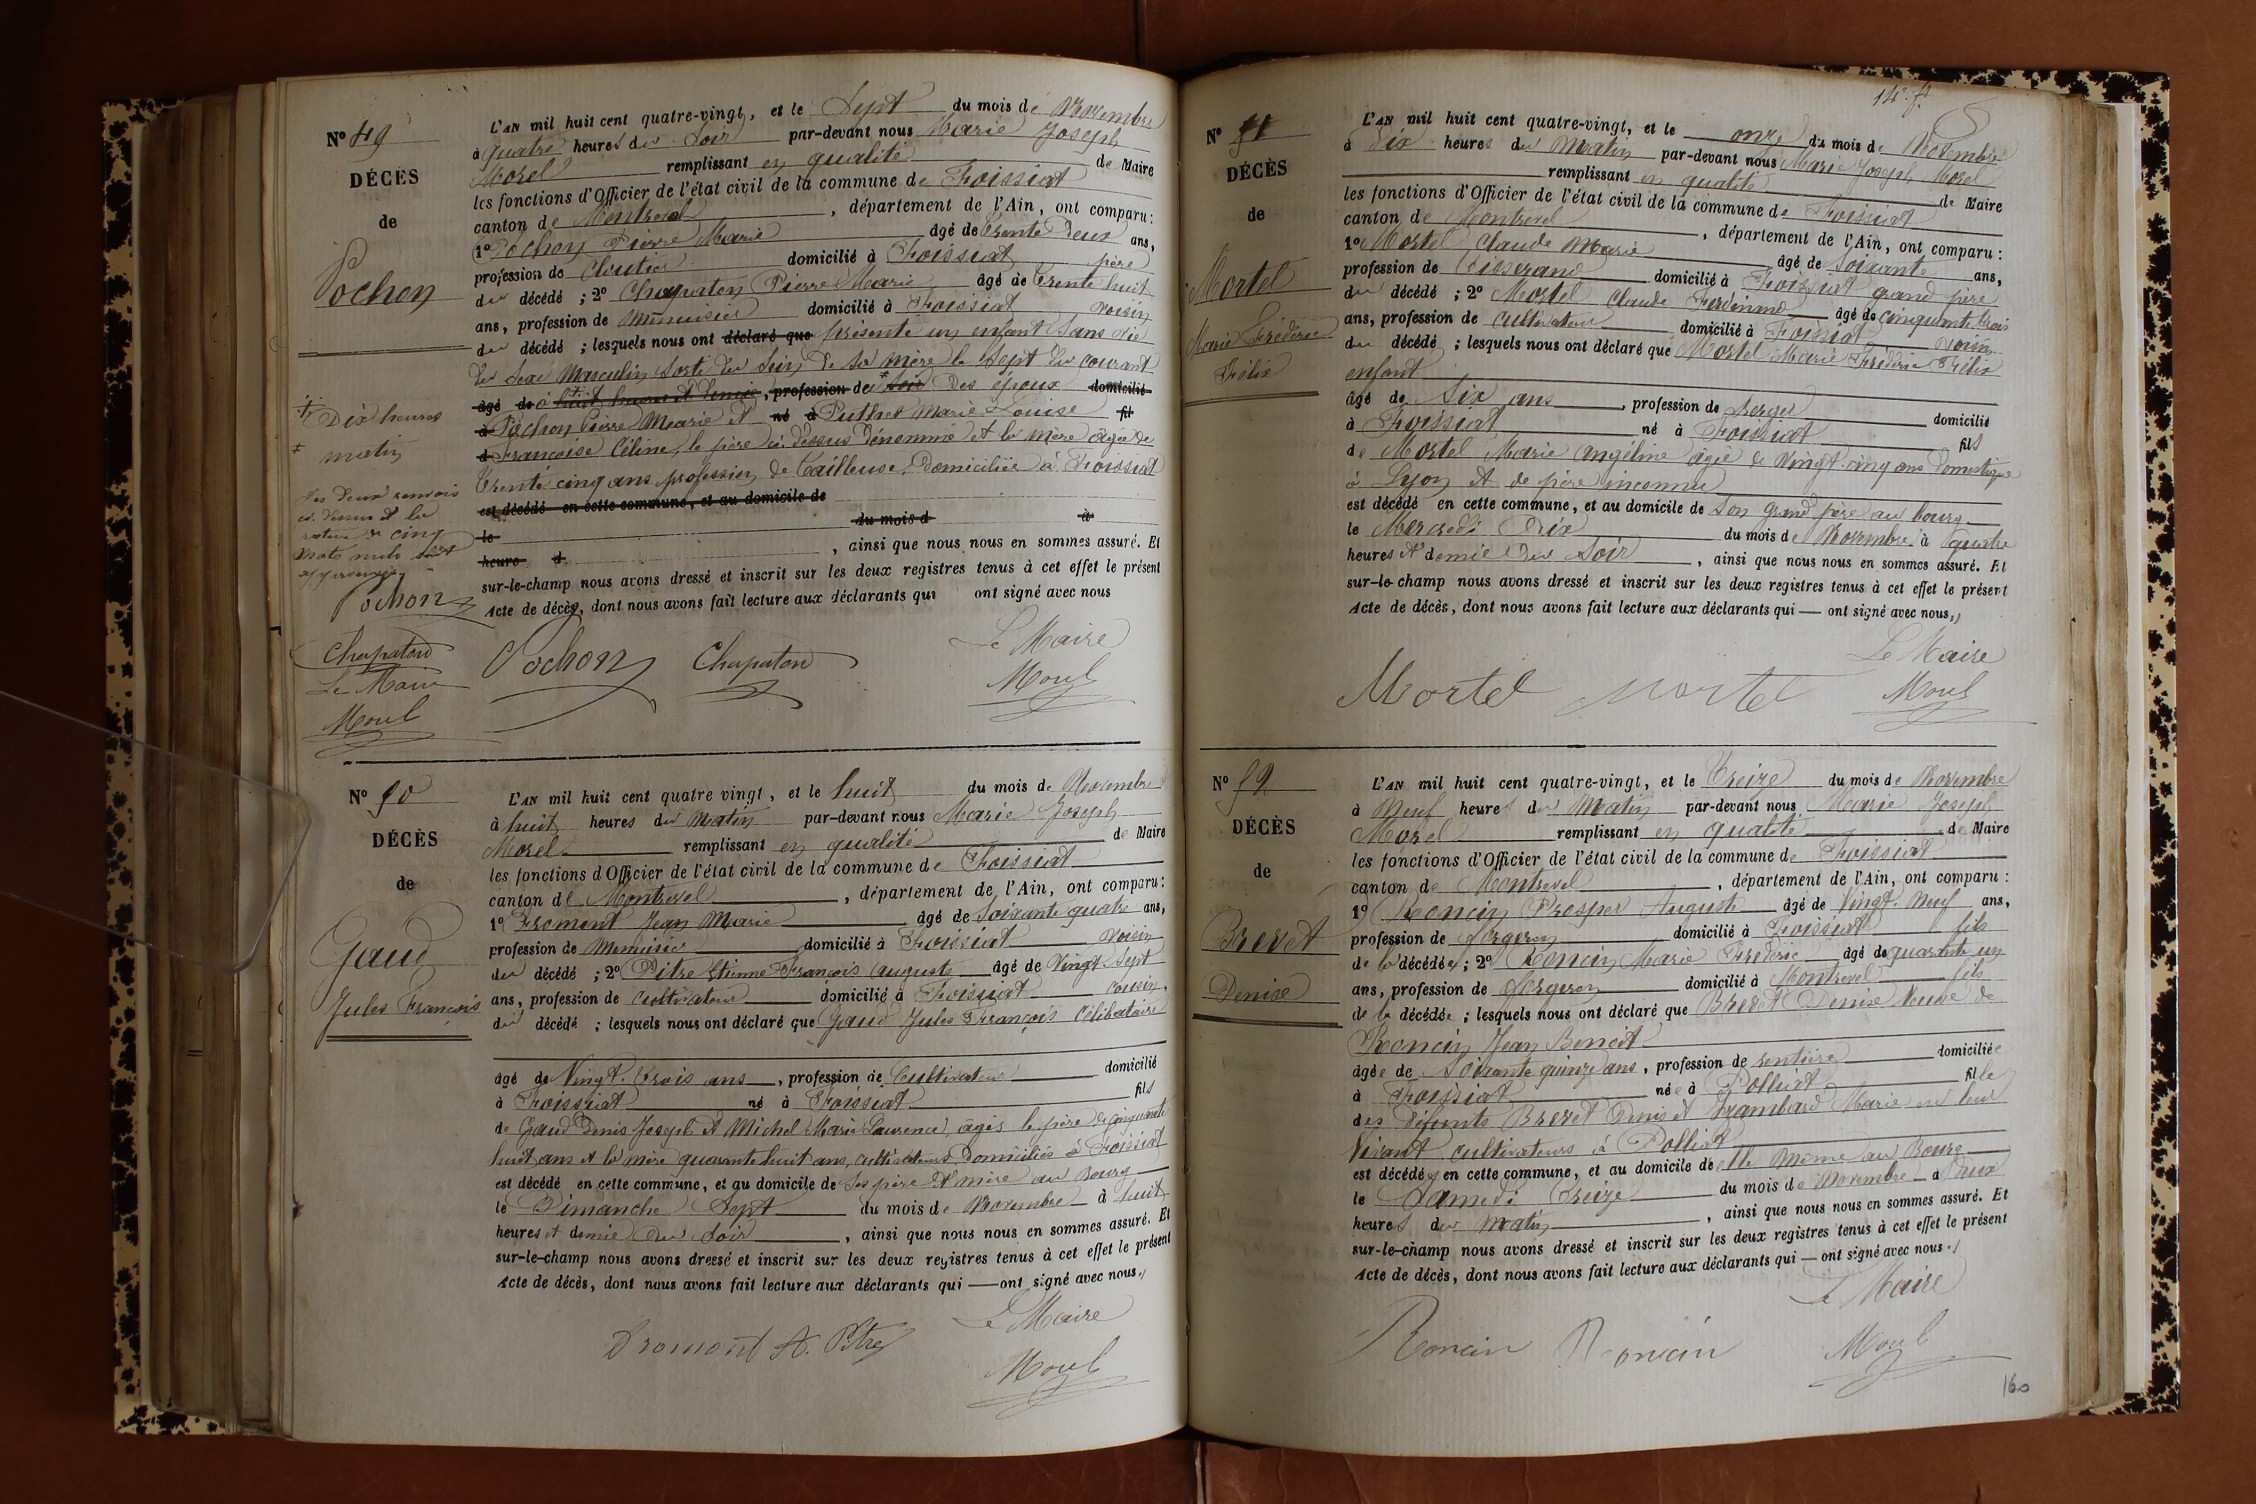 N° 49
DÉCÈS
de
Pochon
L'AN mil huit cent quatre-vingt, et le Sept du mois de Novembre
à quatre heures du Soir par-devant nous Marie Joseph
Morel remplissant en qualité de Maire
les fonctions d'Officier de l'état civil de la commune de Foissiat
canton de Montrevel, département de l'Ain, ont comparu :
1° Pochon Pierre Marie âgé de trente deux ans,
profession de Cloutier domicilié à Foissiat père
du décédé ; 2° Chapaton Pierre Marie âgé de trente huit
ans, profession de Menuisier domicilié à Foissiat voisin
du décédé ; lesquels nous ont déclaré que présenté un enfant Sans vie
du Sexe Masculin Sorti du Sein de sa mère le Sept du courant
âgé de à huit heures et demie, profession de soir des époux domicilié
à Pochon Pierre Marie et né à Puthet Marie Louise fil
d Françoise Céline, le père ci-dessus dénommé et la mère âgée de
trente cinq ans profession de tailleuse, domiciliée à Foissiat
est décédé en cette commune, et au domicile de
le du mois d à
heure d , ainsi que nous nous en sommes assuré. Et
sur-le-champ nous avons dressé et inscrit sur les deux registres tenus à cet effet le présent
Acte de décès, dont nous avons fait lecture aux déclarants qui ont signé avec nous
Dix heures
matin
les deux renvois
ci-dessus et la
rature de cinq
mots nuls sont
approuvés
Pochon
Chapaton
Le Maire
Morel
Pochon Chapaton Le Maire
Morel
N° 50
DÉCÈS
de
Gaud
Jules François
L'AN mil huit cent quatre vingt, et le huit du mois de Novembre
à huit heures du Matin par-devant nous Marie Joseph
Morel remplissant en qualité de Maire
les fonctions d'Officier de l'état civil de la commune de Foissiat
canton de Montrevel, département de l'Ain, ont comparu :
1° Fromont Jean Marie âgé de Soixante quatre ans,
profession de Menuisier domicilié à Foissiat voisin
du décédé ; 2° Pitre Etienne François Auguste âgé de Vingt Sept
ans, profession de Cultivateur domicilié à Foissiat cousin
du décédé ; lesquels nous ont déclaré que Gaud Jules François Célibataire
âgé de Vingt-trois ans, profession de Cultivateur domicilié
à Foissiat né à Foissiat fils
de Gaud Denis Joseph et Michel Marie Laurence, âgés le père de cinquante
huit ans et la mère quarante huit ans, cultivateurs domiciliés à Foissiat
est décédé en cette commune, et au domicile de Ses père et mère au Bourg
le Dimanche Sept du mois de Novembre à huit
heures et demie du Soir, ainsi que nous nous en sommes assuré. Et
sur-le-champ nous avons dressé et inscrit sur les deux registres tenus à cet effet le présent
Acte de décès, dont nous avons fait lecture aux déclarants qui ont signé avec nous.
Le Maire
Fromont A. Pitre
Morel
N° 51
DÉCÈS
de
Mortel
Marie Frédéric
Félix
L'AN mil huit cent quatre-vingt, et le onze du mois de Novembre
à Dix heures du Matin par-devant nous Marie Joseph Morel
remplissant en qualité de Maire
les fonctions d'Officier de l'état civil de la commune de Foissiat
canton de Montrevel, département de l'Ain, ont comparu :
1° Mortel Claude Marie âgé de Soixante ans,
profession de Tisserand domicilié à Foissiat grand père
du décédé ; 2° Mortel Claude Ferdinand âgé de cinquante trois
ans, profession de cultivateur domicilié à Foissiat voisin
du décédé ; lesquels nous ont déclaré que Mortel Marie Frédéric Félix
enfant
âgé de Six ans, profession de Berger domicilié
à Foissiat né à Foissiat fils
de Mortel Marie Angéline âgée de Vingt-cinq ans domestique
à Lyon et de père inconnu
est décédé en cette commune, et au domicile de Son grand père au bourg
le Mercredi Dix du mois de Novembre à quatre
heures et demie du Soir, ainsi que nous nous en sommes assuré. Et
sur-le-champ nous avons dressé et inscrit sur les deux registres tenus à cet effet le présent
Acte de décès, dont nous avons fait lecture aux déclarants qui — ont signé avec nous
Le Maire
Mortel Mortel Morel
N° 52
DÉCÈS
de
Brevet
Denise
L'AN mil huit cent quatre-vingt, et le Treize du mois de Novembre
à Neuf heures du Matin par-devant nous Marie Joseph
Morel remplissant en qualité de Maire
les fonctions d'Officier de l'état civil de la commune de Foissiat
canton de Montrevel, département de l'Ain, ont comparu :
1° Roncin Prosper Auguste âgé de Vingt-Neuf ans,
profession de forgeron domicilié à Foissiat fils
de la décédée ; 2° Roncin Marie Frédéric âgé de quarante un
ans, profession de forgeron domicilié à Montrevel fils
de la décédée ; lesquels nous ont déclaré que Brevet Denise Veuve de
Roncin Jean Benoit
âgée de Soixante quinze ans, profession de rentière domiciliée
à Foissiat née à Polliat fille
des défunts Brevet Denis et Frambard Marie en leur
Vivant cultivateurs à Polliat
est décédée en cette commune, et au domicile de elle même au Bourg
le Samedi Treize du mois de Novembre à Deux
heures du Matin, ainsi que nous nous en sommes assuré. Et
sur-le-champ nous avons dressé et inscrit sur les deux registres tenus à cet effet le présent
Acte de décès, dont nous avons fait lecture aux déclarants qui — ont signé avec nous.
Le Maire
Roncin Roncin Morel
160